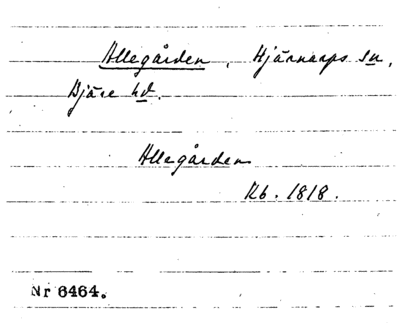 Allegården, Hjärnarps sn,
Bjäre hd.
Allegården
Kb. 1818.
Nr 6464.